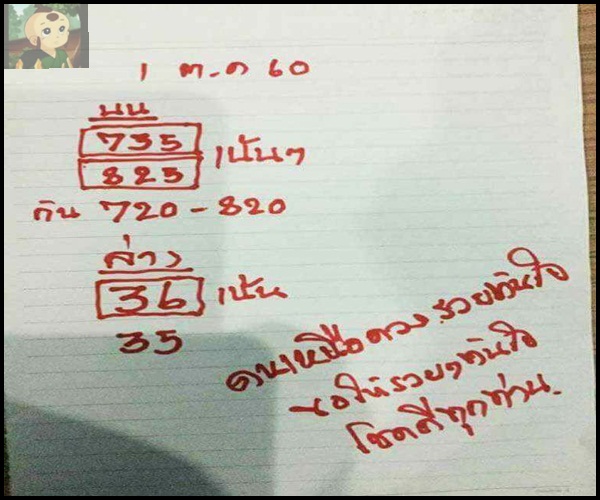 1 ต.ค 60
บน
735
825 เน้นๆ
กัน 720 - 820
ล่าง
36 เน้น
35
คนเหนือดวง รวยทันใจ
ขอให้รวยๆทันใจ
โชคดีทุกท่าน.